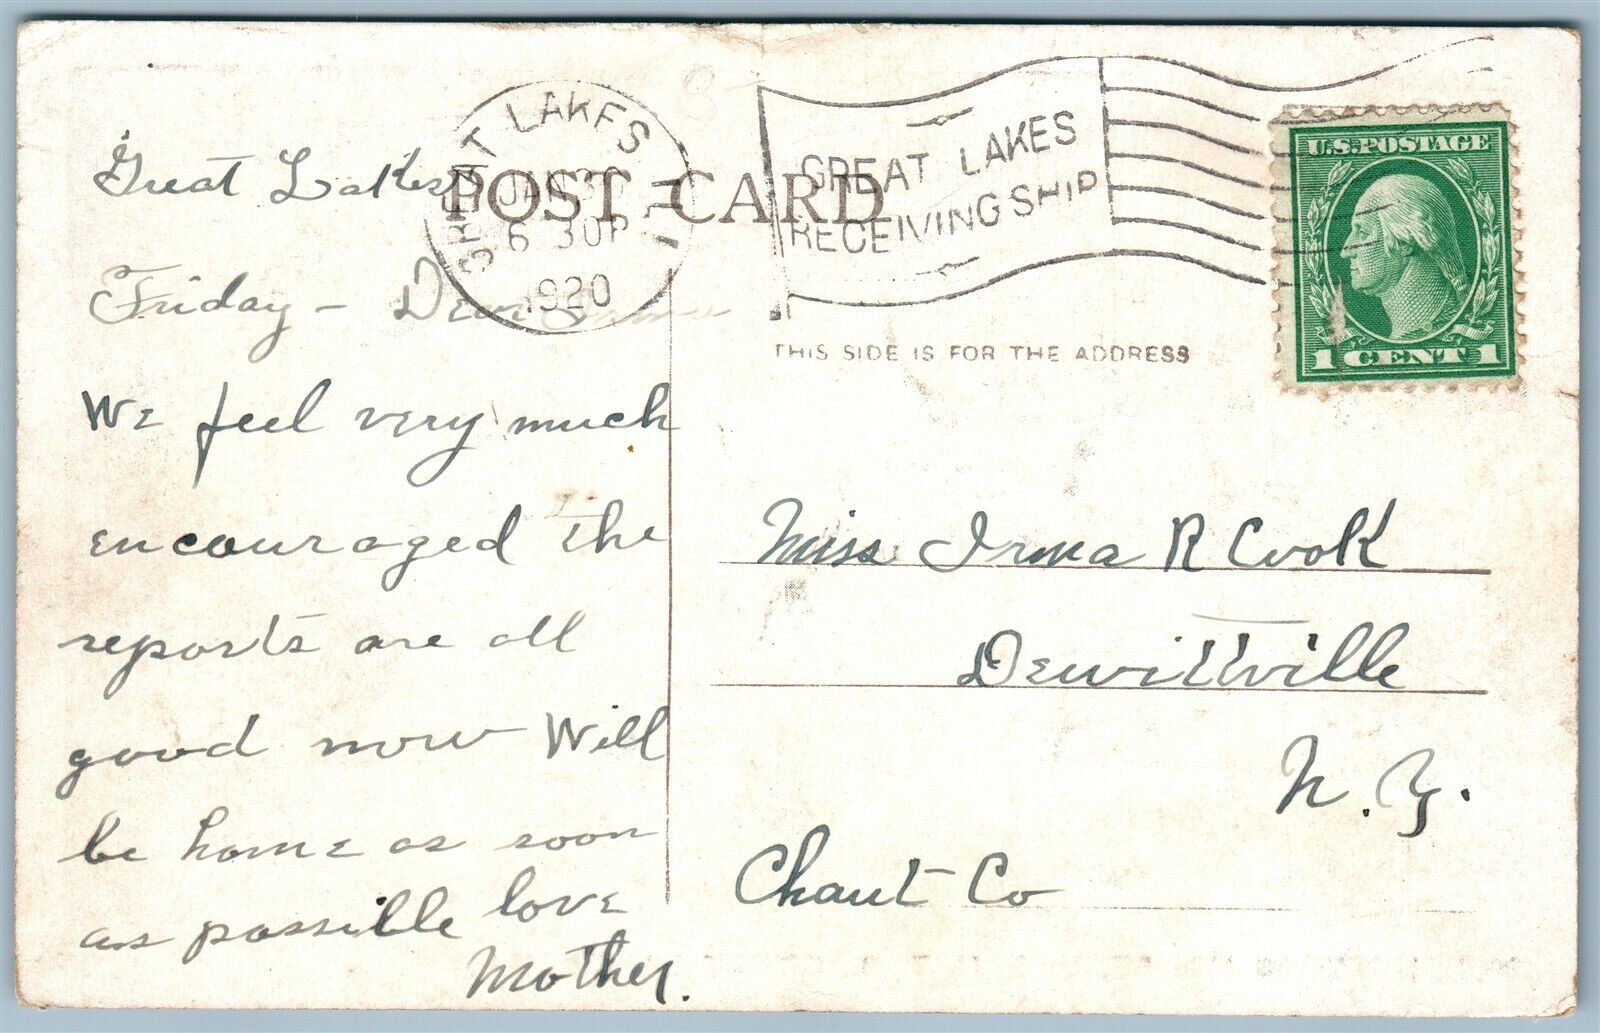 GREAT LAKES ILL
JAN 30
6 30P
1920
GREAT LAKES
RECEIVING SHIP
U.S. POSTAGE
1 CENT 1
POST CARD
THIS SIDE IS FOR THE ADDRESS
Great Lakes
Friday - Dear Irma
We feel very much
encouraged the
reports are all
good now Will
be home as soon
as possible love
Mother.
Miss Irma R Cook
Dewittville
N. Y.
Chaut Co